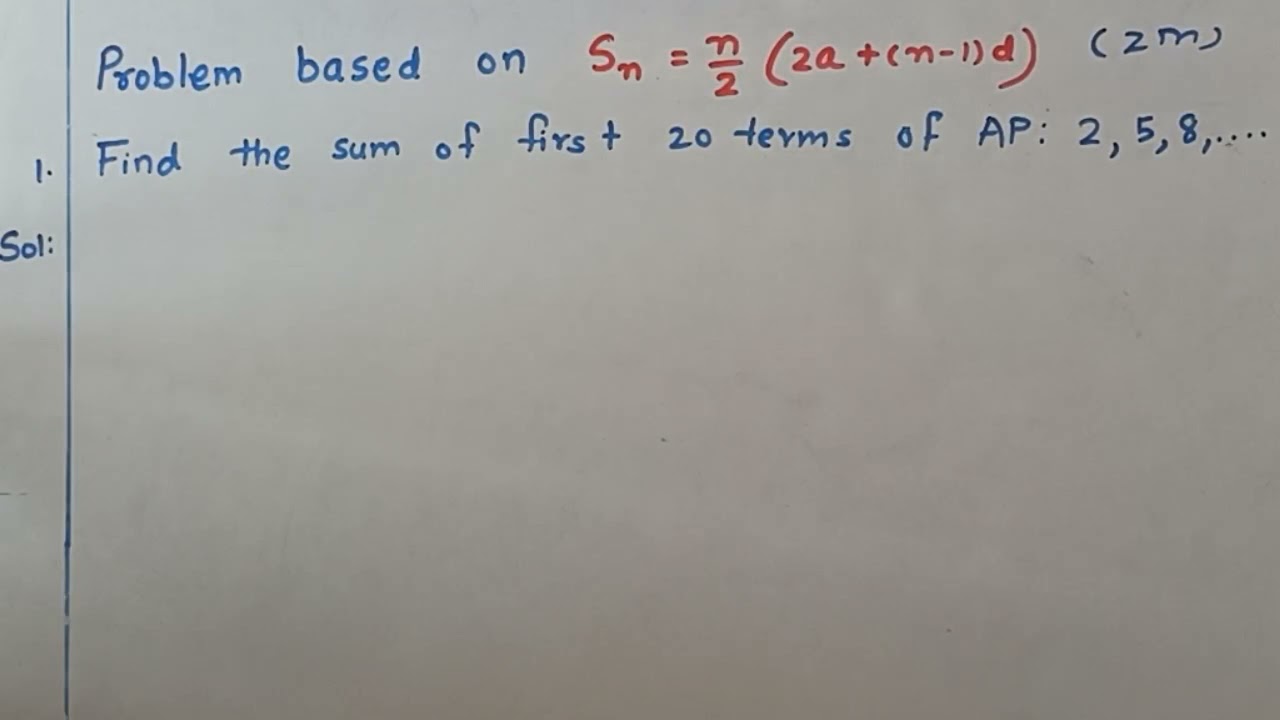 Problem based on Sn = n/2 (2a + (n-1)d) (2m)
1. Find the sum of first 20 terms of AP: 2, 5, 8,....
Sol: